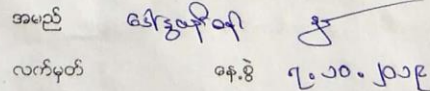 အမည် ဒေါ်နွယ်နီဝင်း
လက်မှတ် နေ့စွဲ ၇.၁၀.၂၀၁၉